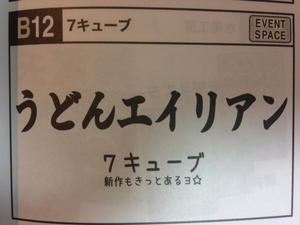 B12 7キューブ EVENT
SPACE
うどんエイリアン
7キューブ
新作もきっとあるヨ☆